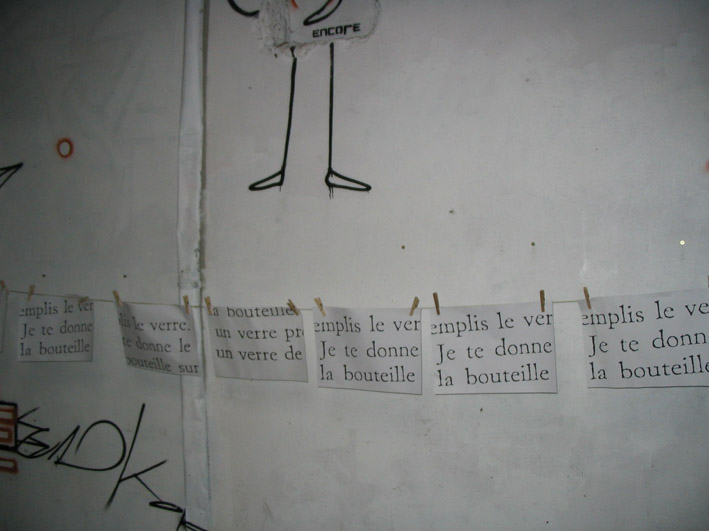 encore
emplis le ver
Je te donne
la bouteille
lis le verre.
te donne le
bouteille sur
la bouteille
un verre pr
un verre de
emplis le ver
Je te donne
la bouteille
emplis le ver
Je te donne
la bouteille
emplis le verr
Je te donn
la bouteille